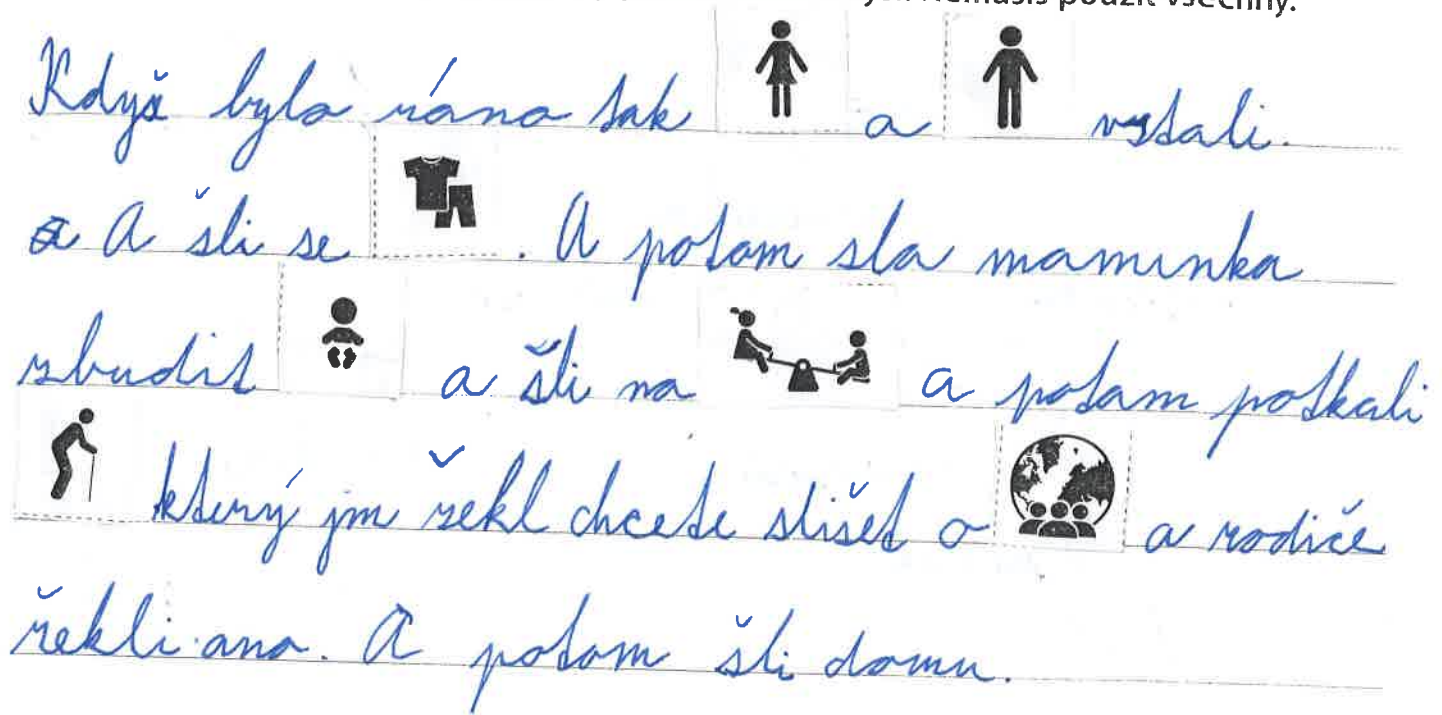 nemusíš použít všechny.
Kdyš bylo ráno tak a vstali.
A šli se . A potom sla maminka
zbudit a šli na a potom potkali
který jm řekl chcete slišet o a rodiče
řekli ano. A potom šli domu.